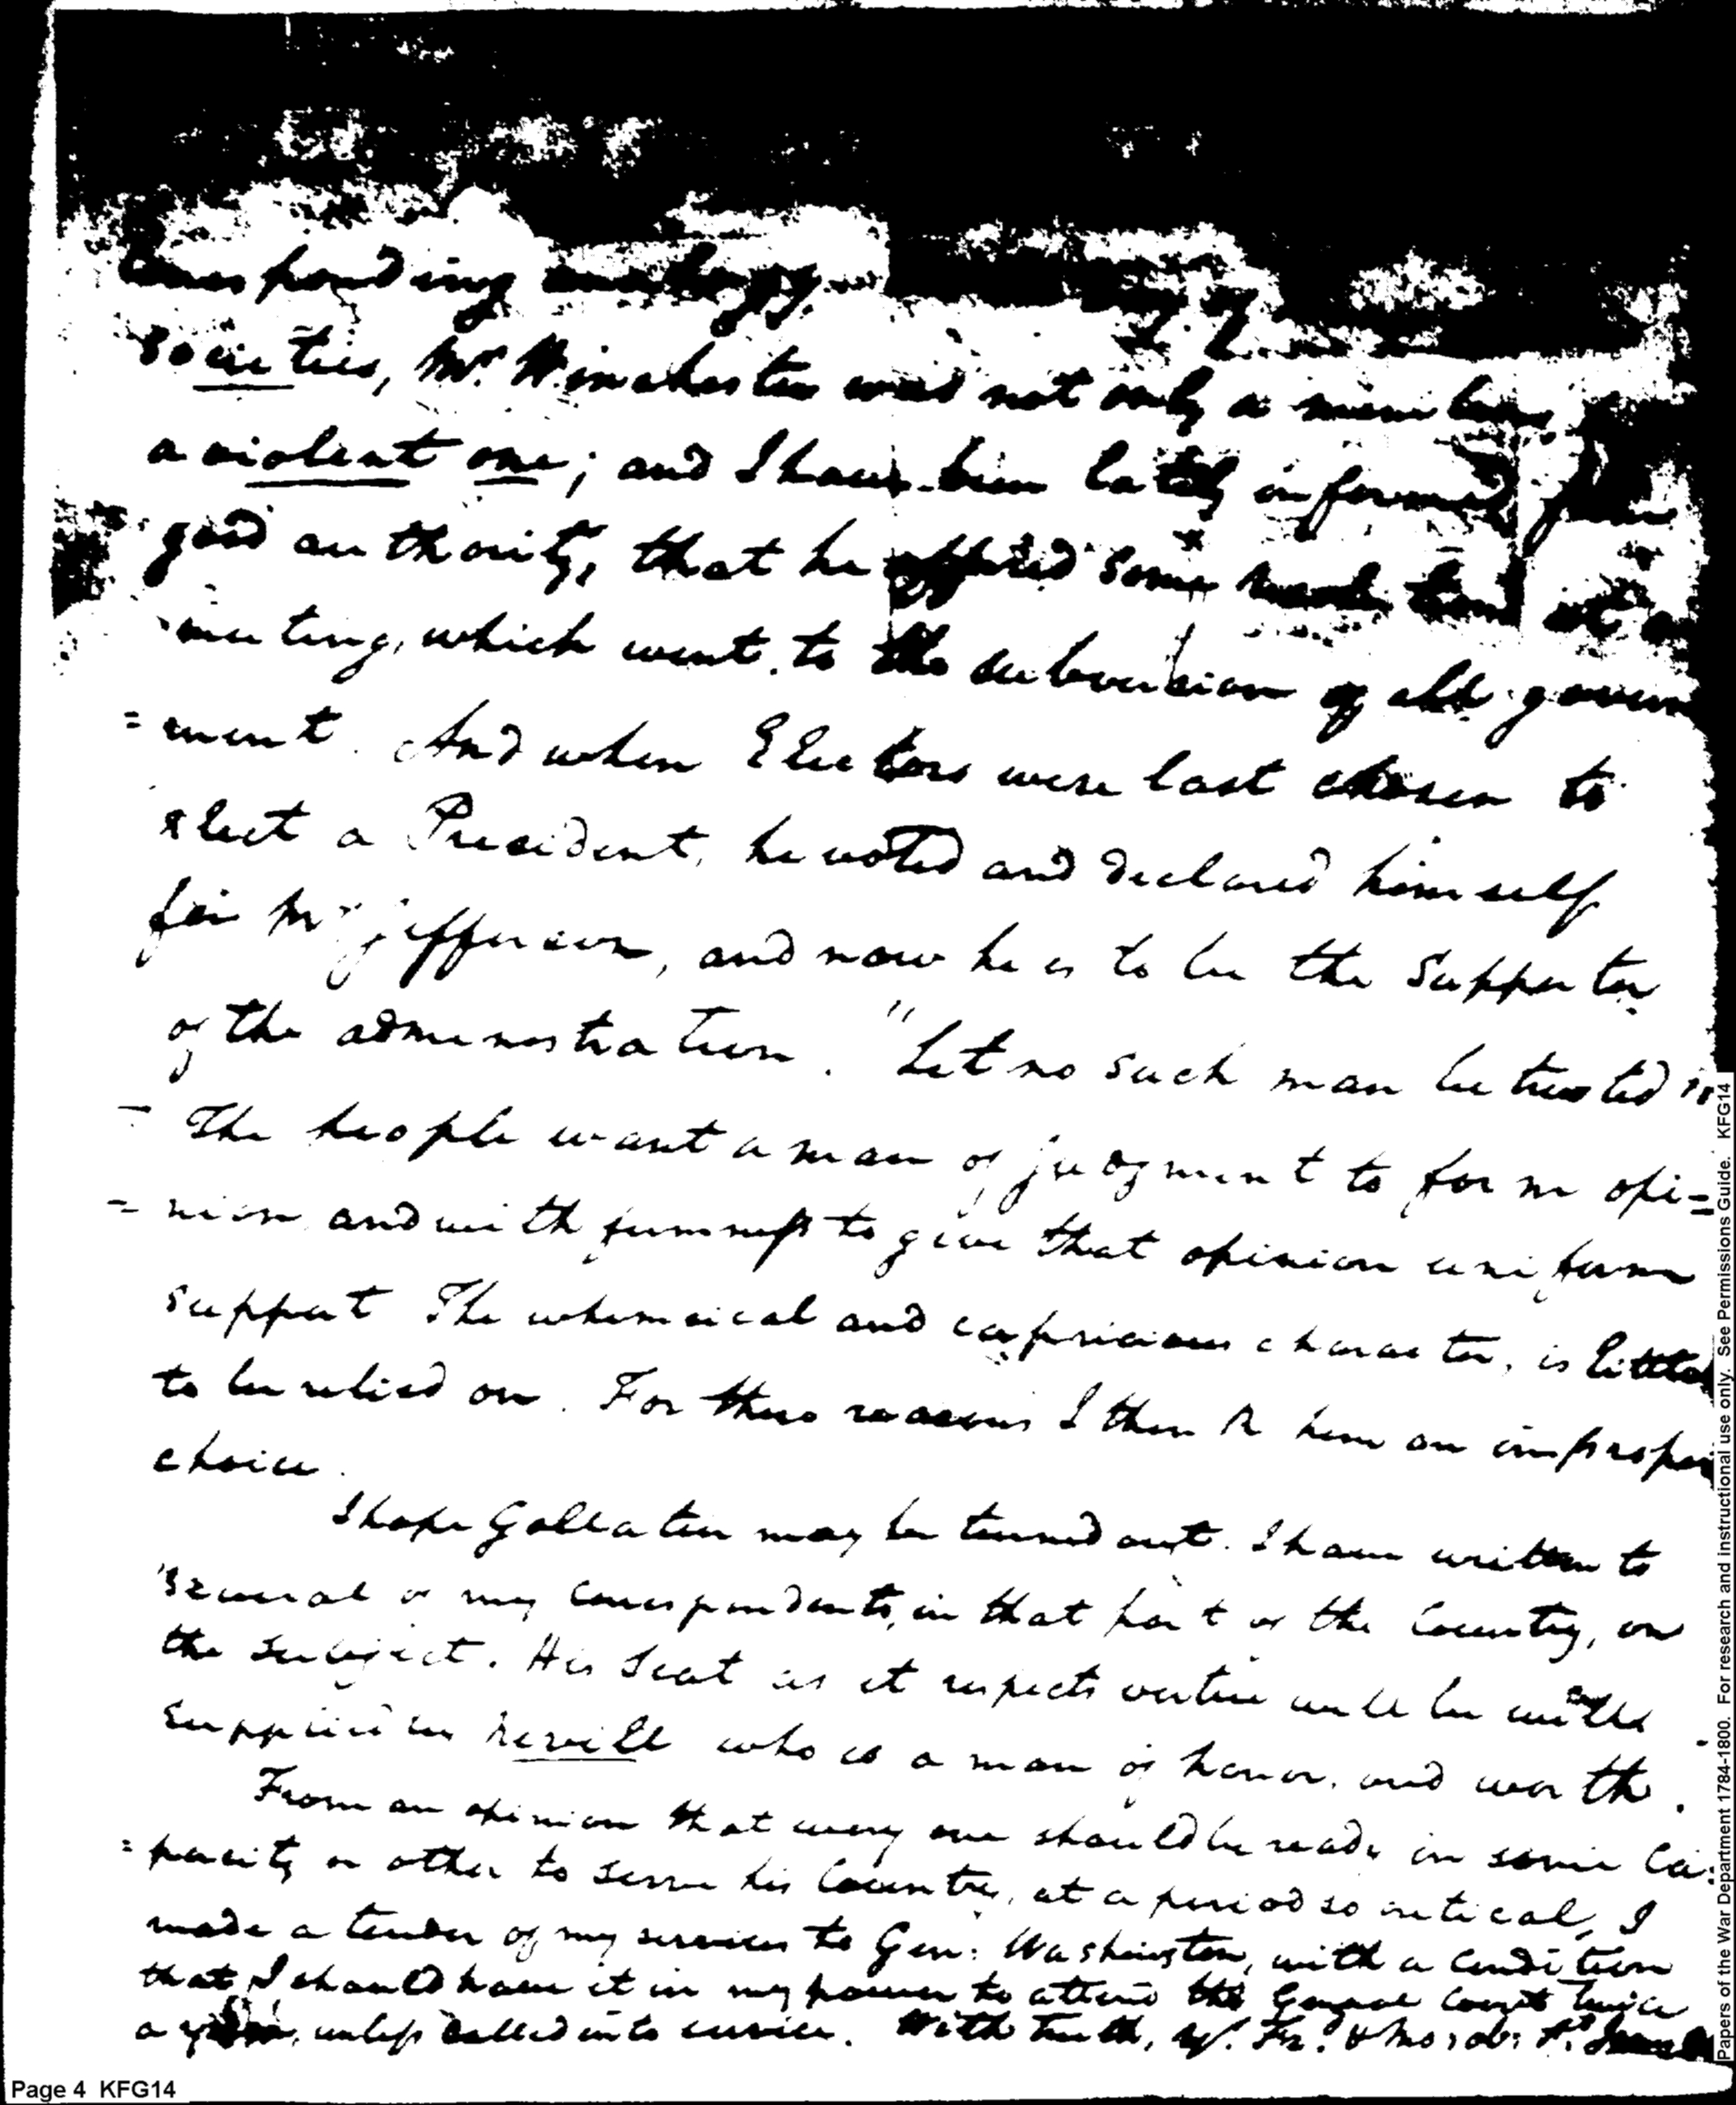 corresponding analogy.
societies, Mr. Winchester was not only a member
a violent one; and I have been lately informed from
good authority, that he offered some resolutions at a
meeting, which went to the subversion of all govern
=ment. And when Electors were last chosen to
elect a President, he voted and declared himself
for Mr. Jefferson, and now he is to be the supporter
of the administration. "Let no such man be trusted"
- The people want a man of judgment to form opi=
=nion and with firmness to give that opinion uniform
support The whimsical and capricious character, is little
to be relied on. For these reasons I think him an improper
choice.
I hope Gallatin may be turned out. I have written to
several of my correspondents, in that part of the Country, on
the subject. His Seat as it respects virtue will be well
supplied by Nevill who is a man of honor, and worth.
From an opinion that every one should be ready in some Ca=
=pacity or other to serve his Country, at a period so critical, I
made a tender of my services to Gen: Washington, with a condition
that I should have it in my power to attend the General Court twice
a year, unless called into service. With truth, yr. Fr. & mo: ob: St.
Page 4 KFG14
Papers of the War Department 1784-1800. For research and instructional use only. See Permissions Guide. KFG14